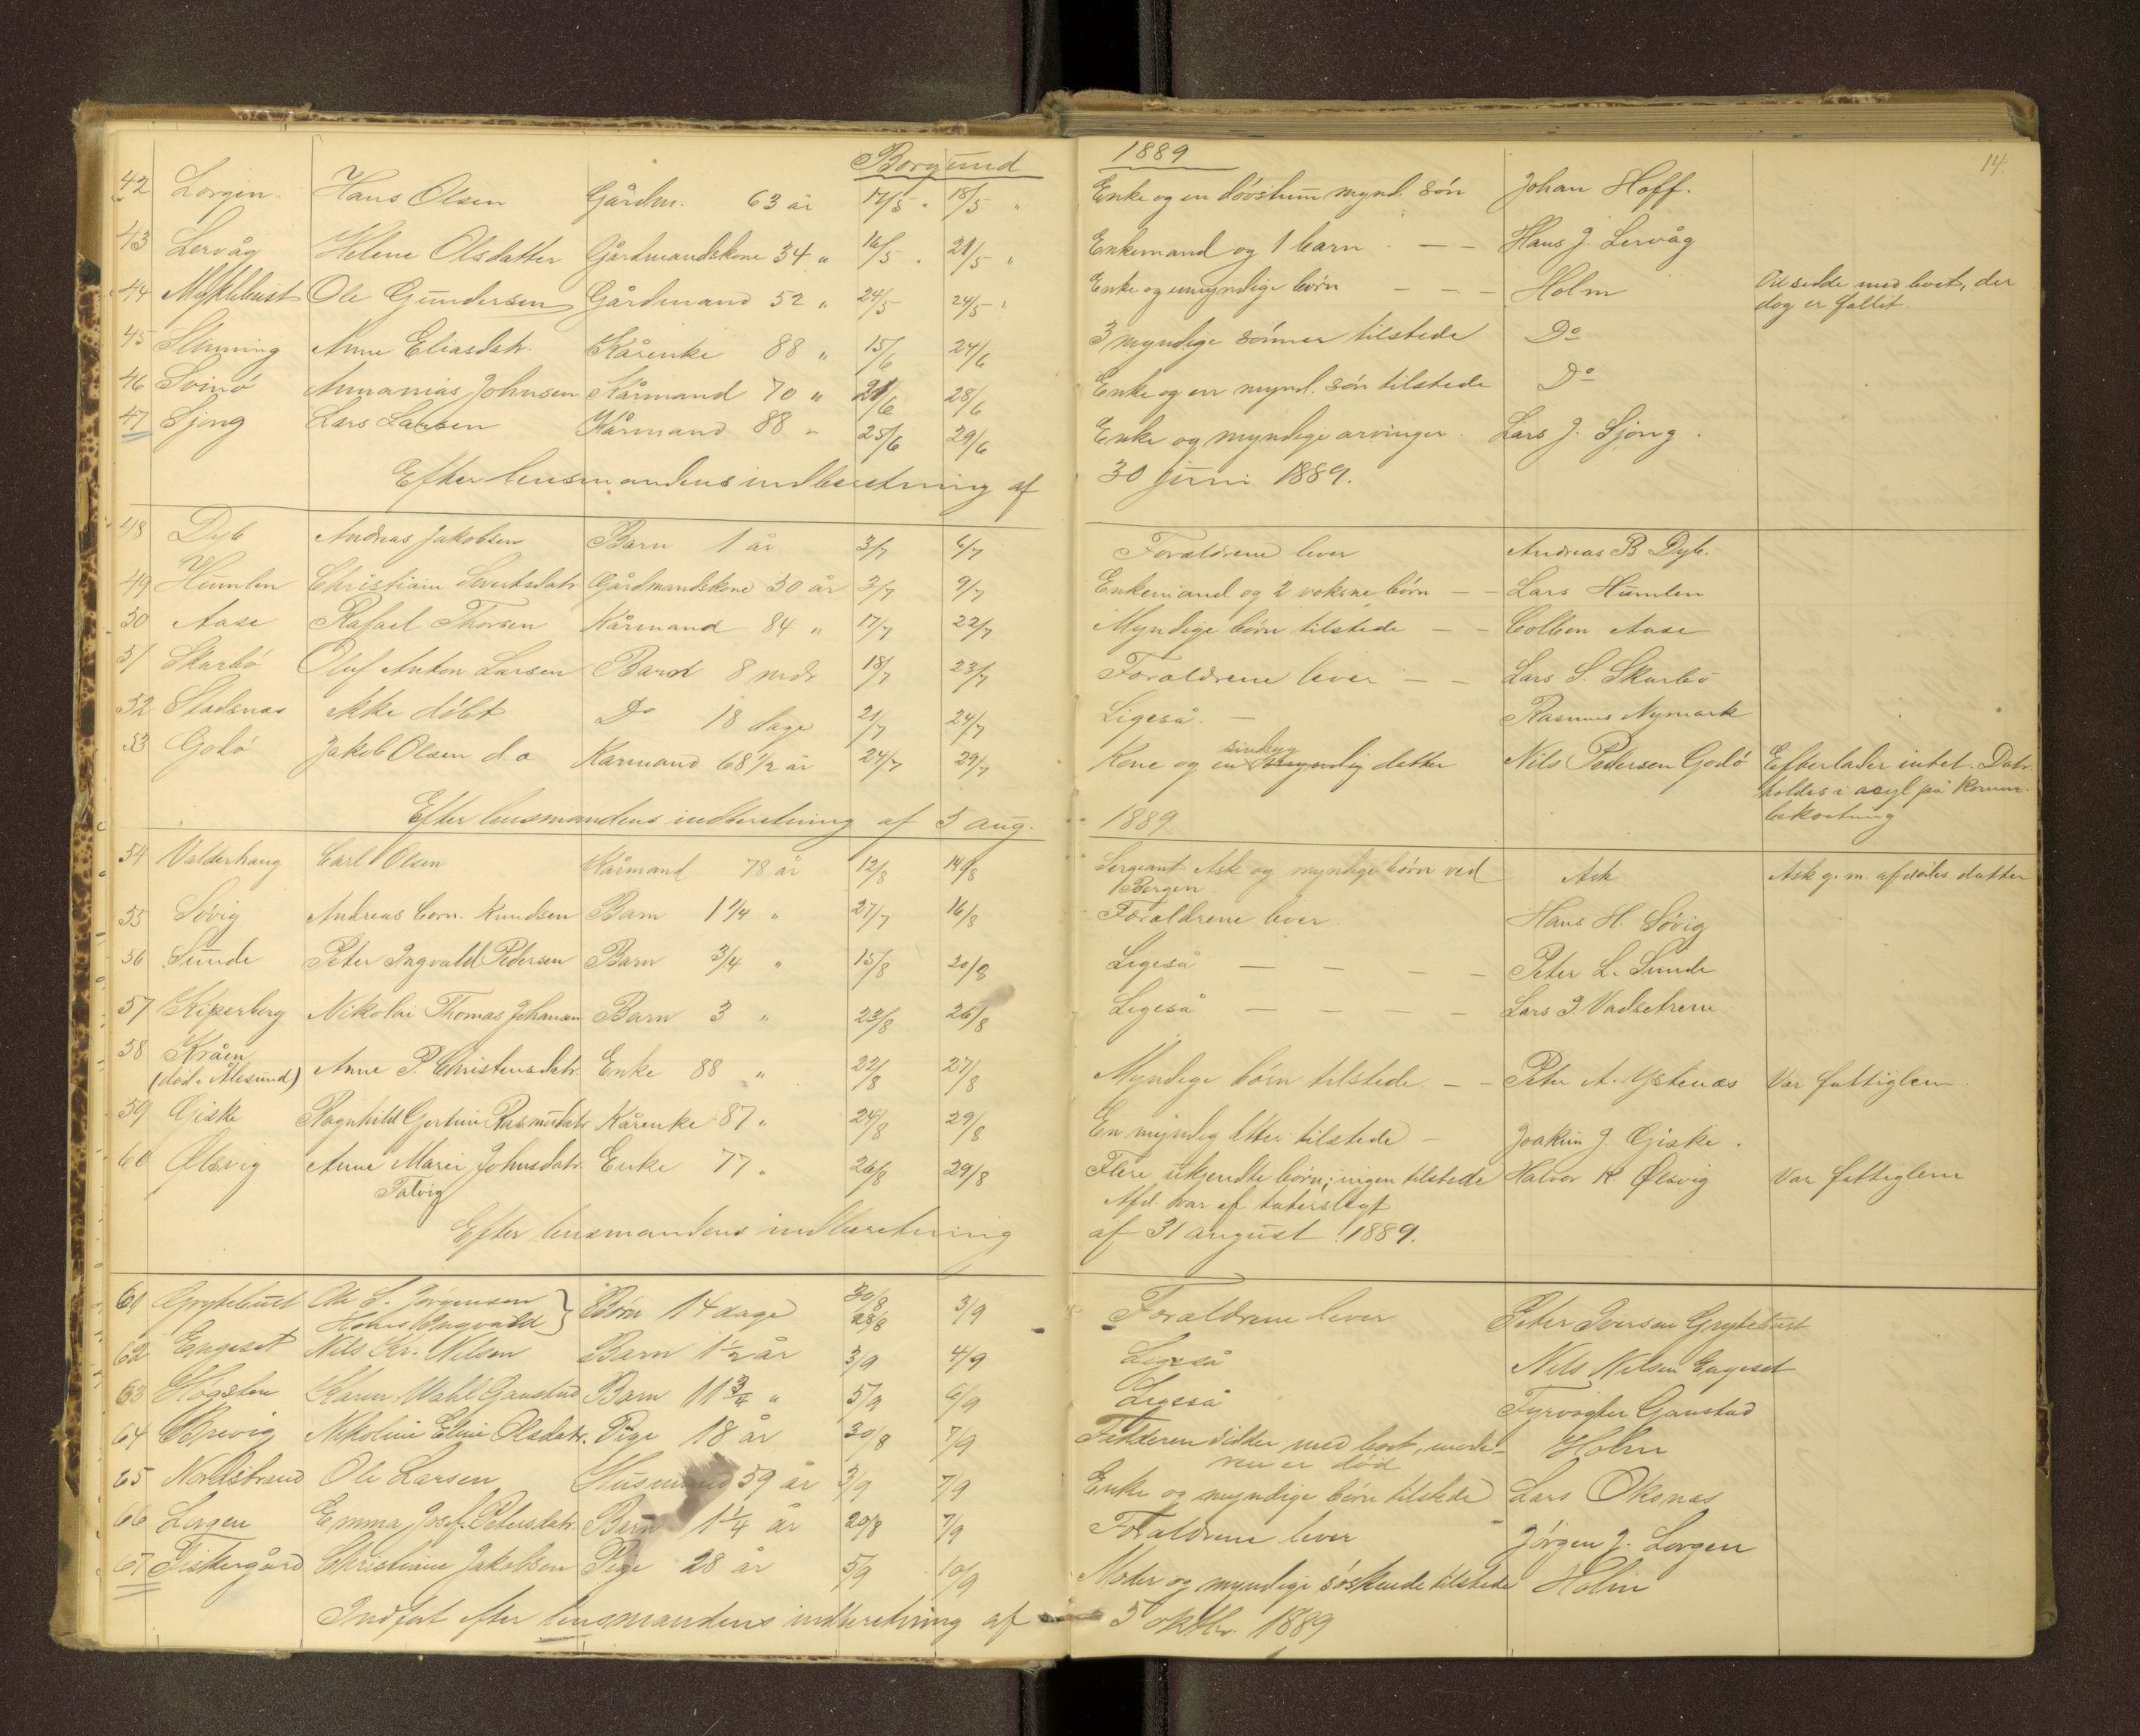 Borgund 1889 14
42 Lorgen Hans Olsen Gårdm. 63 år 17/5 " 18/5 " Enke og en døvstum mynd. søn Johan Hoff.
43 Lervåg Helene Olsdatter Gårdmandskone 34 " 16/5 " 21/5 " Enkemand og 1 barn. — — Hans J. Lervåg
44 Myklebust Ole Gundersen Gårdmand 52 " 24/5 24/5 " Enke og umyndige børn — — — Holm sidde med boet, der
dog er fallit.
45 Slinning Anne Eliasdatr. Kårenke 88 " 15/6 24/6 3 myndige sønner tilstede Do
46 Svinø Annanias Johnsen Kårmand 70 " 21/6 28/6 Enke og en mynd. søn tilstede Do
47 Sjong Lars Larsen Kårmand 88 " 25/6 29/6 Enke og myndige arvinger. Lars J. Sjong.
Efter lensmandens indberetning af 30 juni 1889.
48 Dyb Andreas Jakobsen Barn 1 år 3/7 6/7 Forældrene lever Andreas B Dyb.
49 Humlen Christiane Sivertsdatr. Gårdmandskone 30 år 3/7 9/7 Enkemand og 2 voksne børn — — Lars Humlen
50 Aase Rafael Thorsen Kårmand 84 " 17/7 22/7 Myndige børn tilstede — — Colben Aase
51 Skarbø Oluf Anton Larsen Barn 8 mdr 18/7 23/7 Forældrene lever — — Lars S. Skarbø
52 Stadsnæs ikke døbt Do 18 dage 21/7 24/7 Ligeså. — Rasmus Nymark
53 Godø Jakob Olsen d.æ Kårmand 68 1/2 år 24/7 29/7 Kone og en sindsyg datter Nils Pedersen Godø Efterlader intet. Datr.
holdes i asyl på Komm.
bekostning
Efter lensmandens indberetning af 5 aug. 1889
54 Valderhaug Carl Olsen Kårmand 78 år 12/8 14/8 Sergeant Ask og myndige børn ved Ask Ask g. m. afdødes datter
Bergen.
55 Søvig Andreas Corn. Knudsen Barn 1 1/4 " 27/7 16/8 Forældrene lever Hans H. Søvig
56 Sunde Peter Ingvald Pedersen Barn 3/4 " 15/8 20/8 Ligeså — — — — Peter L. Sunde
57 Kiperberg Nikolai Thomas Johansen Barn 3 " 23/8 26/8 Ligeså — — — — Lars J. Vadsetrem
58 Kråen Anne P. Christensdatr. Enke 88 " 22/8 27/8 Myndige børn tilstede. — — Peter A. Ystenæs Var fattiglem
(død i Ålesund)
59 Giske Ragnhild Gertine Rasmusdatr Kårenke 87 " 24/8 29/8 En myndig dtter tilstede — Joakim J. Giske.
60 Ølsvig Anne Marei Johnsdatr. Enke 77 " 26/8 29/8 Flere ukjendte børn; ingen tilstede Halvor K. Ølsvig Var fattiglem
Talvig Afd. var af taterslægt
Efter lensmandens indberetning af 31 august 1889.
61 Grytebust Ole S. Jørgensen Børn 14 dage 30/8 3/9 Forældrene lever Peter Iversen Grytebust
Ingvald 28/8
62 Engeset Nils Kr. Nilsen Barn 1 1/2 år 3/9 4/9 Ligeså Nils Nilsen Engeset
63 Høgsten Karen Wahl Ganstad Barn 11 3/4 " 5/9 6/9 Ligeså Fyrvogter Ganstad
64 Brevig Nikoline Eline Olsdatr. Pige 18 år 30/8 7/9 Faderen sidder med boet, mode- Holm
ren er død
65 Nordstrand Ole Larsen Husmand 59 år 3/9 7/9 Enke og myndige børn tilstede Lars Oksnæs
66 Lorgen Emma Josef. Petersdatr. Barn 1 1/4 år 20/8 7/9 Forældrene lever Jørgen J. Lorgen
67 Fiskergård Christiane Jakobsen Pige 28 år 5/9 10/9 Moder og myndige søskende tilstede Holm
Indført efter lensmandens indberetning af 5 oktbr. 1889